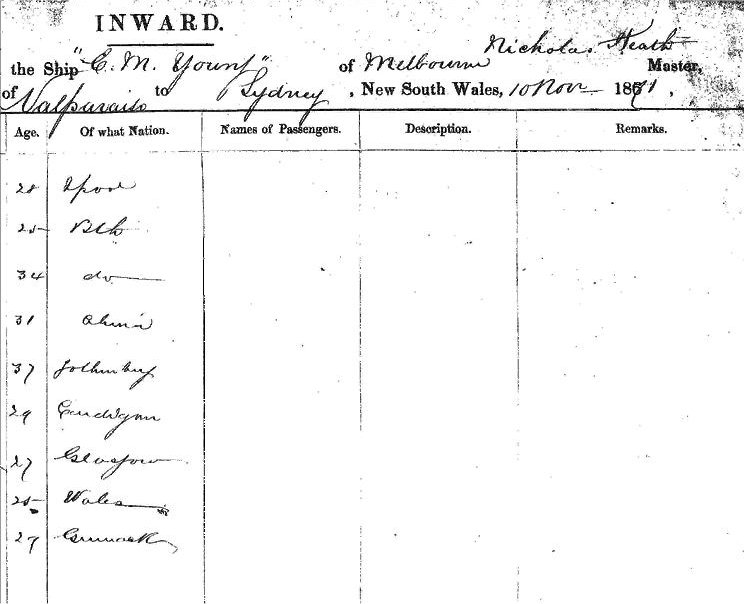 INWARD.
the Ship "C. M. Young" of Melbourne Nicholas Heath Master,
of Valparaiso to Sydney, New South Wales, 10 Nov 1871,
Age. Of what Nation. Names of Passengers. Description. Remarks.
28
25
34 do
31
37
29 Cardigan
27 Glasgow
25 Wales
27 Greenock